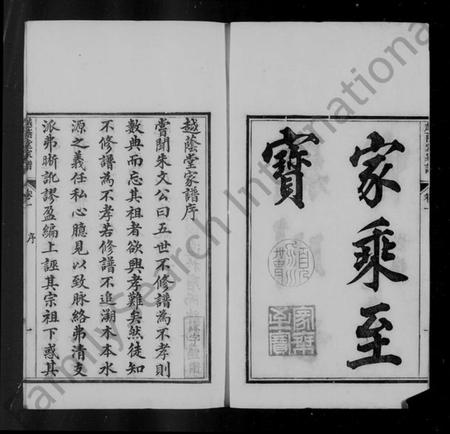 家乘至
寶
越蔭堂家譜序
嘗聞朱文公曰五世不修譜為不孝則
數典而忘其祖者欲興孝難矣然徒知
不修譜為不孝若修譜不追溯木本水
源之義任私心臆見以致脉絡弗清支
派弗晰訛謬盈編上誣其宗祖下惑其
序
一
FamilySearch International